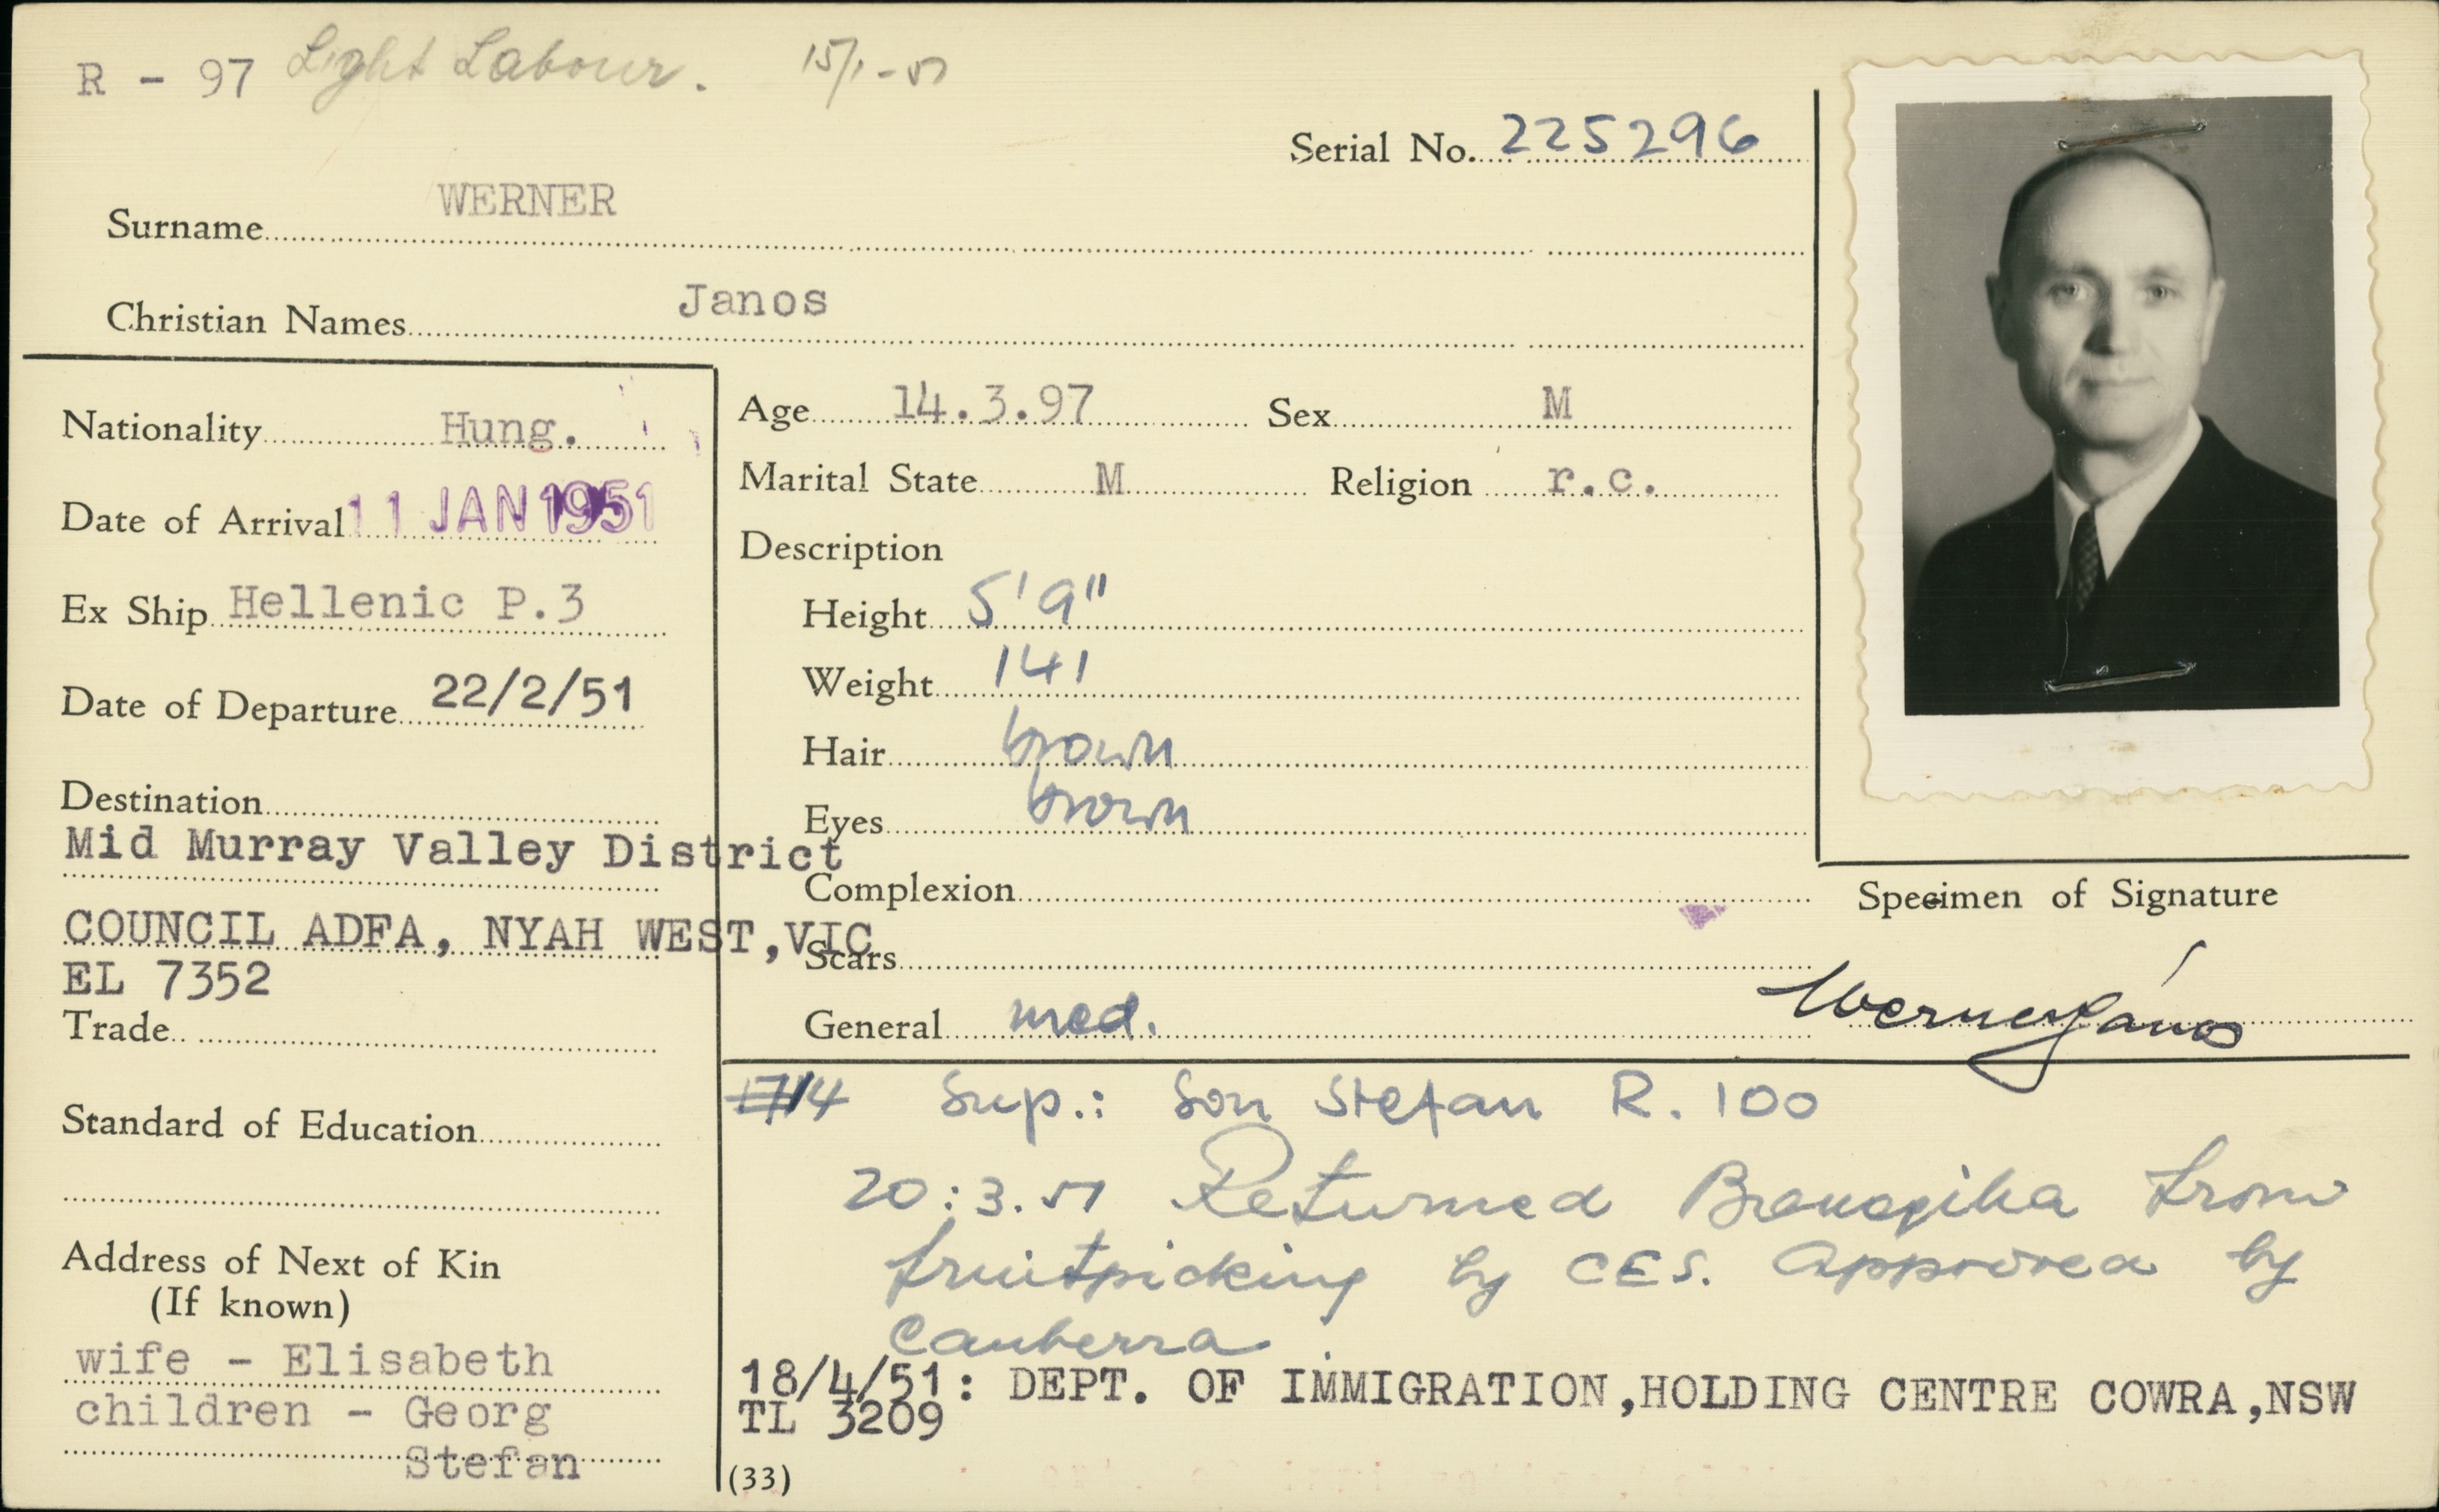 R - 97 Light Labour. 15/1-51
Serial No. 225296
Surname WERNER
Christian Names Janos
Nationality Hung.
Date of Arrival 11 JAN 1951
Ex Ship Hellenic P.3
Date of Departure 22/2/51
Destination
Mid Murray Valley District
COUNCIL ADFA, NYAH WEST,VIC
EL 7352
Trade
Standard of Education
Address of Next of Kin
(If known)
wife - Elisabeth
children - Georg
Stefan
Age 14.3.97 Sex M
Marital State M Religion r.c.
Description
Height 5'9"
Weight 141
Hair brown
Eyes brown
Complexion
Scars
General med.
Specimen of Signature
Werner János
Sup.: Son Stefan R. 100
20:3.51 Returned Bonegilla from
fruitpicking by CES. Approved by
Canberra
18/4/51: DEPT. OF IMMIGRATION,HOLDING CENTRE COWRA,NSW
TL 3209
(33)